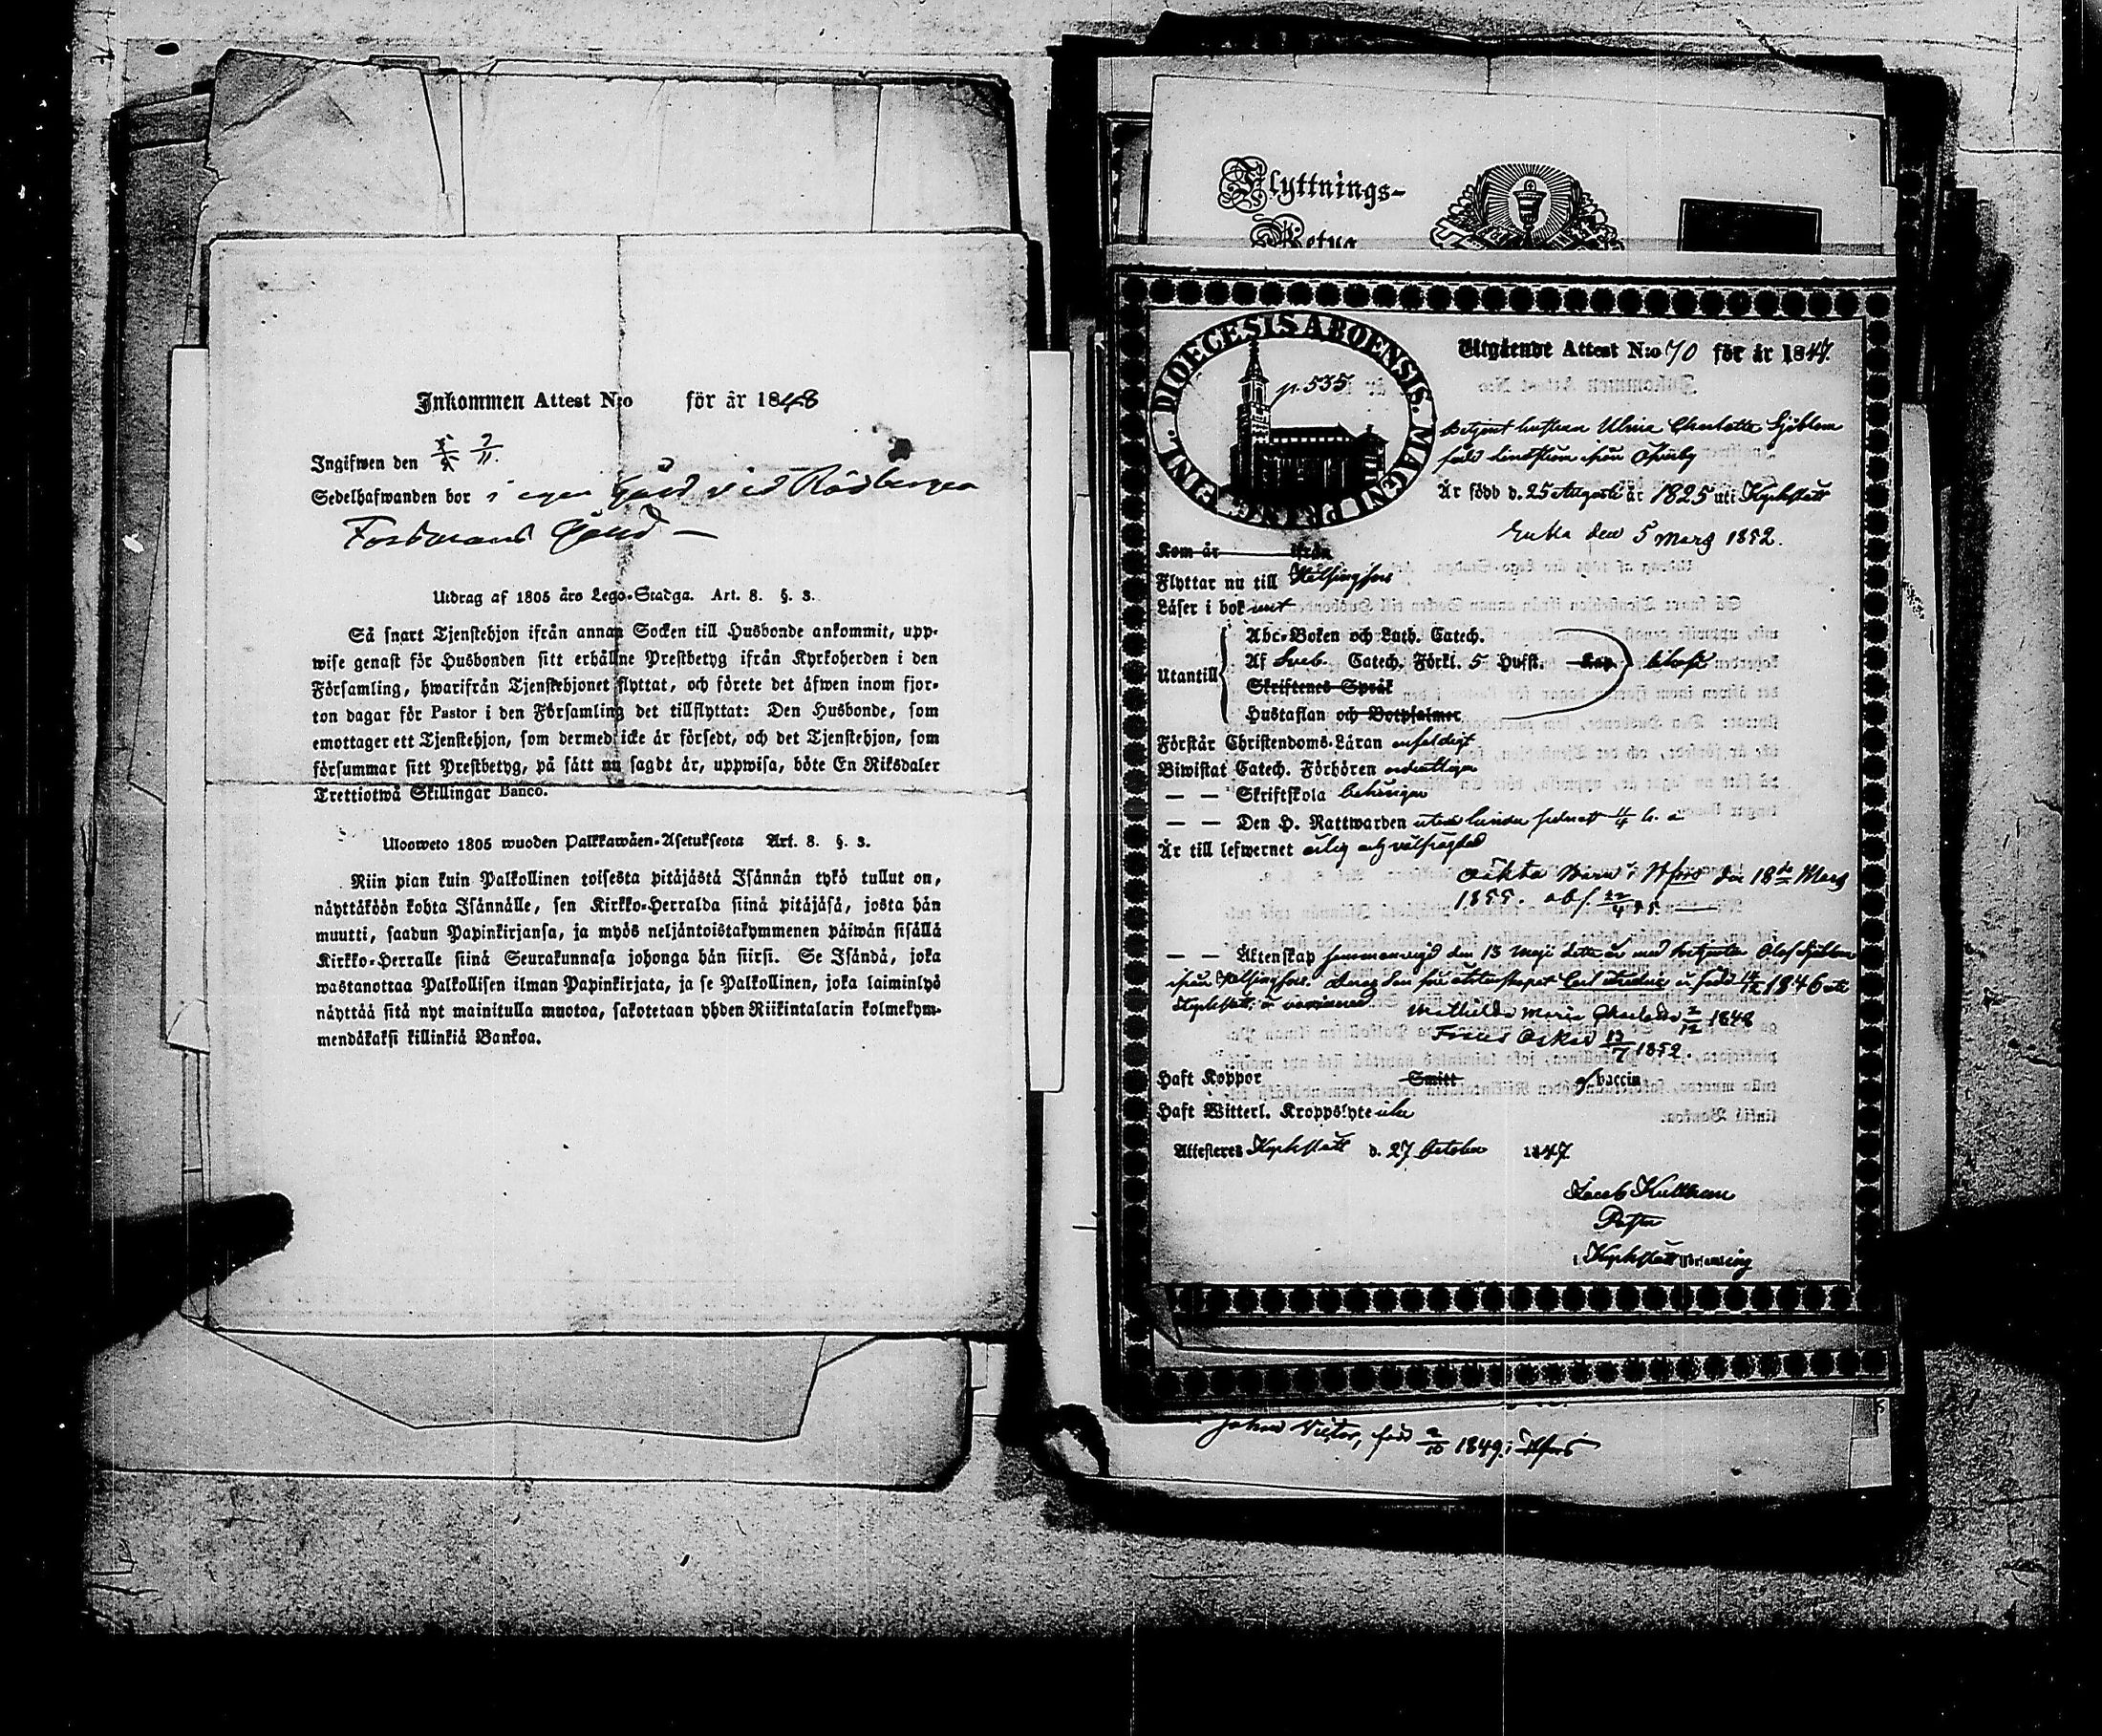 Inkommen Attest N:o för år 1848
Ingifwen den 7/11.
Sedelhafwanden bor i egen Gård vid Rödbergen
Forsmans Gård —
Utdrag af 1805 års Lego-Stadga. Art. 8. §. 3.
Så snart Tjenstehjon ifrån annan Socken till Husbonde ankommit, upp-
wise genast för Husbonden sitt erhållne Prestbetyg ifrån Kyrkoherden i den
Församling, hwarifrån Tjenstehjonet flyttat, och förete det äfwen inom fjor-
ton dagar för Pastor i den Församling det tillflyttat: Den Husbonde, som
emottager ett Tjenstehjon, som dermed icke är försedt, och det Tjenstehjon, som
försummar sitt Prestbetyg, på sätt nu sagdt är, uppwisa, böte En Riksdaler
Trettiotwå Skillingar Banco.
Uloosweto 1805 wuoden Palkkawäen-Asetuksesta Art. 8. §. 3.
Niin pian kuin Palkollinen toisesta pitäjästä Isännän tykö tullut on,
näyttäköön kohta Isännälle, sen Kirkko-Herralda siinä pitäjäsä, josta hän
muutti, saadun Papinkirjansa, ja myös neljäntoistakymmenen päiwän sisällä
Kirkko-Herralle siinä Seurakunnasa johonga hän siirsi. Se Isändä, joka
wastanottaa Palkollisen ilman Papinkirjata, ja se Palkollinen, joka laiminlyö
näyttää sitä nyt mainitulla muotoa, sakotetaan yhden Riikintalarin kolmekym-
mendäkaksi killinkiä Bankoa.
Flyttnings-
Betyg
DIOECESIS ABOENSIS. MAGNI PRINC. FINL.
p. 535
Utgående Attest N:o 70 för år 1847.
Betjent hustrun Ulrica Charlotta Sjöblom
född
Är född d. 25 Augusti år 1825 uti Kyrkslätt
Enka den 5 Mars 1852.
Kom år ifrån
Flyttar nu till Helsingfors
Läser i bok
Utantill
Abc-Boken och Luth. Catech.
Af Sveb. Catech. Förkl. 5 Hufst. Kap.
Skriftenes Språk
Hustaflan och Botpsalmer
Förstår Christendoms-Läran enfaldigt
Biwistat Catech. Förhören ordentligen
— — Skriftskola behörigen
— — Den H. Nattwarden
Är till lefwernet ärlig och välfrägdad
oäkta Barn i Hfors den 18 Mars
1855. abs. 22/4 55. —
— — Äktenskap sammanvigd den 13 Maji detta år med betjenten Olof Sjöblom
ifrån Helsingfors. född 1846 uti
Kyrkslätt, är vaccinerad. Mathilda Maria Charlotta 2/12 1848
Frans Oskar 13/7 1852.
Haft Koppor Smitt vaccin
Haft Witterl. Kroppslyte icke
Attesteres Kyrkslätt d. 27 October 1847
Jacob Kullman
Pastor
i Kyrkslätt församling
Johan Victor, född 2/10 1849 i Hfors